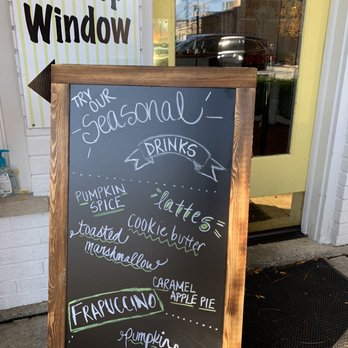 Window
TRY OUR
Seasonal
DRINKS
PUMPKIN
SPICE
lattes
cookie butter
toasted
marshmallow
CARAMEL
APPLE PIE
FRAPUCCINO
pumpkin